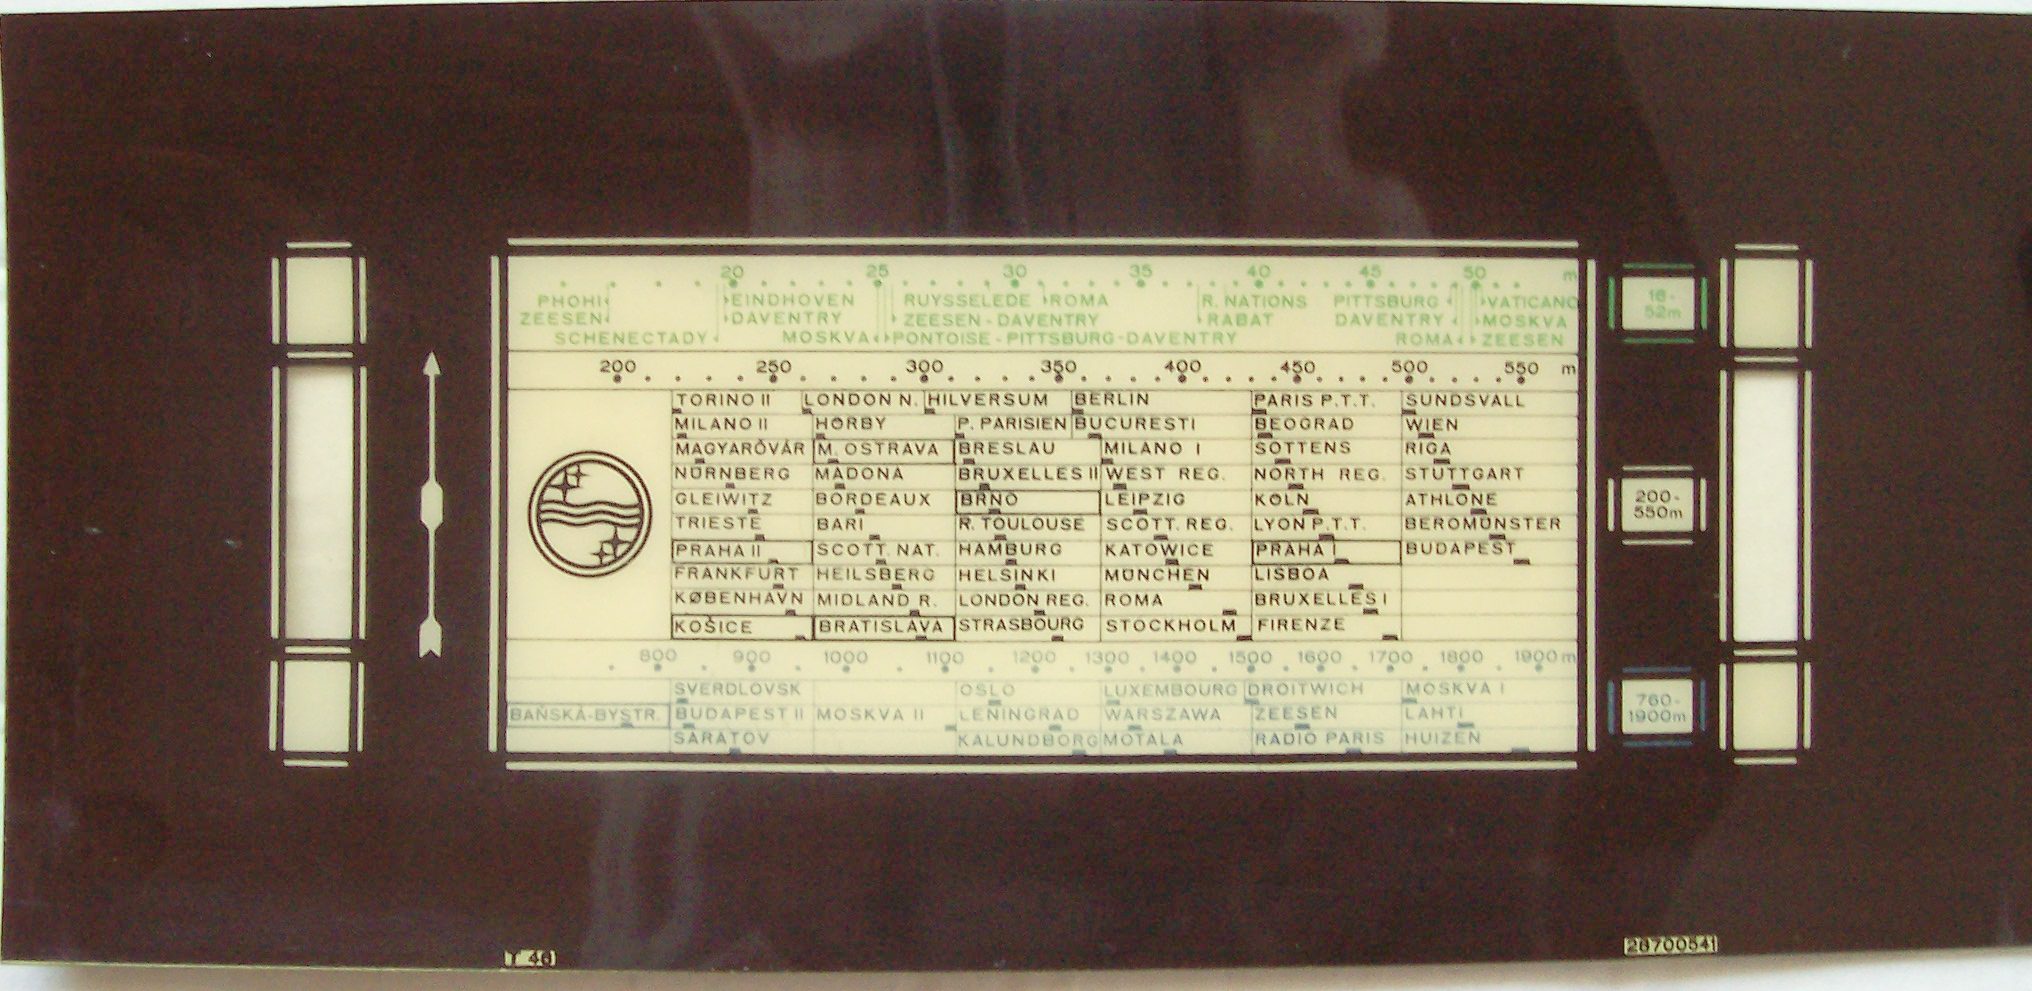 20 25 30 35 40 45 50 m
PHOHI EINDHOVEN RUYSSELEDE ROMA R. NATIONS PITTSBURG VATICANO
ZEESEN DAVENTRY ZEESEN - DAVENTRY RABAT DAVENTRY MOSKVA
SCHENECTADY MOSKVA PONTOISE - PITTSBURG - DAVENTRY ROMA ZEESEN
16-
52m
200 250 300 350 400 450 500 550 m
TORINO II LONDON N. HILVERSUM BERLIN PARIS P.T.T. SUNDSVALL
MILANO II HÖRBY P. PARISIEN BUCURESTI BEOGRAD WIEN
MAGYARÓVÁR M. OSTRAVA BRESLAU MILANO I SOTTENS RIGA
NÜRNBERG MADONA BRUXELLES II WEST REG. NORTH REG. STUTTGART
GLEIWITZ BORDEAUX BRNO LEIPZIG KÖLN ATHLONE
TRIESTE BARI R. TOULOUSE SCOTT. REG. LYON P.T.T. BEROMÜNSTER
PRAHA II SCOTT. NAT. HAMBURG KATOWICE PRAHA I BUDAPEST
FRANKFURT HEILSBERG HELSINKI MÜNCHEN LISBOA
KØBENHAVN MIDLAND R. LONDON REG. ROMA BRUXELLES I
KOŠICE BRATISLAVA STRASBOURG STOCKHOLM FIRENZE
200-
550m
800 900 1000 1100 1200 1300 1400 1500 1600 1700 1800 1900 m
SVERDLOVSK OSLO LUXEMBOURG DROITWICH MOSKVA I
BAŇSKÁ-BYSTR. BUDAPEST II MOSKVA II LENINGRAD WARSZAWA ZEESEN LAHTI
SARATOV KALUNDBORG MOTALA RADIO PARIS HUIZEN
760-
1900m
T 46
28700541